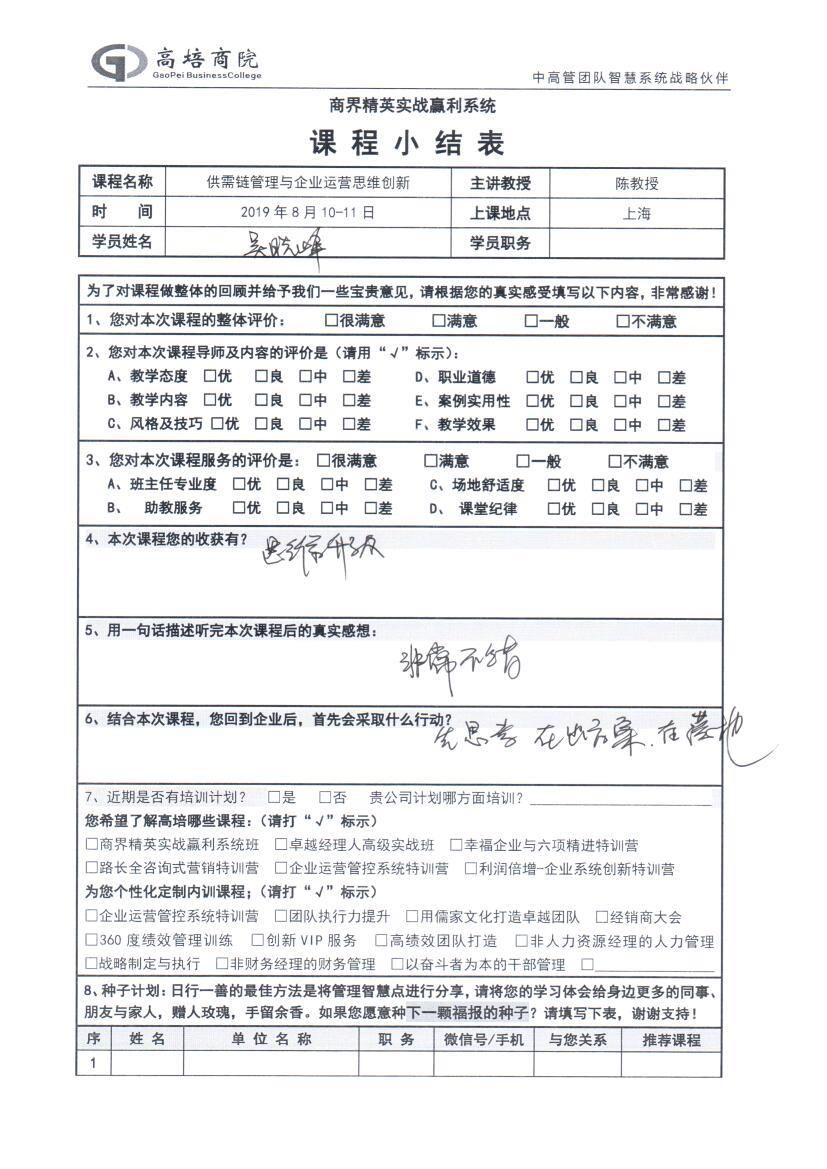 高培商院
GaoPei BusinessCollege
中高管团队智慧系统战略伙伴
商界精英实战赢利系统
课程小结表
课程名称 供需链管理与企业运营思维创新 主讲教授 陈教授
时 间 2019年8月10-11日 上课地点 上海
学员姓名 吴晓峰 学员职务
为了对课程做整体的回顾并给予我们一些宝贵意见,请根据您的真实感受填写以下内容,非常感谢!
1、您对本次课程的整体评价: □很满意 □满意 □一般 □不满意
2、您对本次课程导师及内容的评价是(请用“√”标示):
A、教学态度 □优 □良 □中 □差 D、职业道德 □优 □良 □中 □差
B、教学内容 □优 □良 □中 □差 E、案例实用性 □优 □良 □中 □差
C、风格及技巧 □优 □良 □中 □差 F、教学效果 □优 □良 □中 □差
3、您对本次课程服务的评价是: □很满意 □满意 □一般 □不满意
A、班主任专业度 □优 □良 □中 □差 C、场地舒适度 □优 □良 □中 □差
B、 助教服务 □优 □良 □中 □差 D、 课堂纪律 □优 □良 □中 □差
4、本次课程您的收获有? 思维升级
5、用一句话描述听完本次课程后的真实感想:
非常不错
6、结合本次课程,您回到企业后,首先会采取什么行动?
先思考 在出方案.在落地
7、近期是否有培训计划? □是 □否 贵公司计划哪方面培训?
您希望了解高培哪些课程:(请打“√”标示)
□商界精英实战赢利系统班 □卓越经理人高级实战班 □幸福企业与六项精进特训营
□路长全咨询式营销特训营 □企业运营管控系统特训营 □利润倍增-企业系统创新特训营
为您个性化定制内训课程;(请打“√”标示)
□企业运营管控系统特训营 □团队执行力提升 □用儒家文化打造卓越团队 □经销商大会
□360度绩效管理训练 □创新VIP服务 □高绩效团队打造 □非人力资源经理的人力管理
□战略制定与执行 □非财务经理的财务管理 □以奋斗者为本的干部管理 □
8、种子计划:日行一善的最佳方法是将管理智慧点进行分享,请将您的学习体会给身边更多的同事、
朋友与家人,赠人玫瑰,手留余香。如果您愿意种下一颗福报的种子?请填写下表,谢谢支持!
序 姓名 单位名称 职务 微信号/手机 与您关系 推荐课程
1